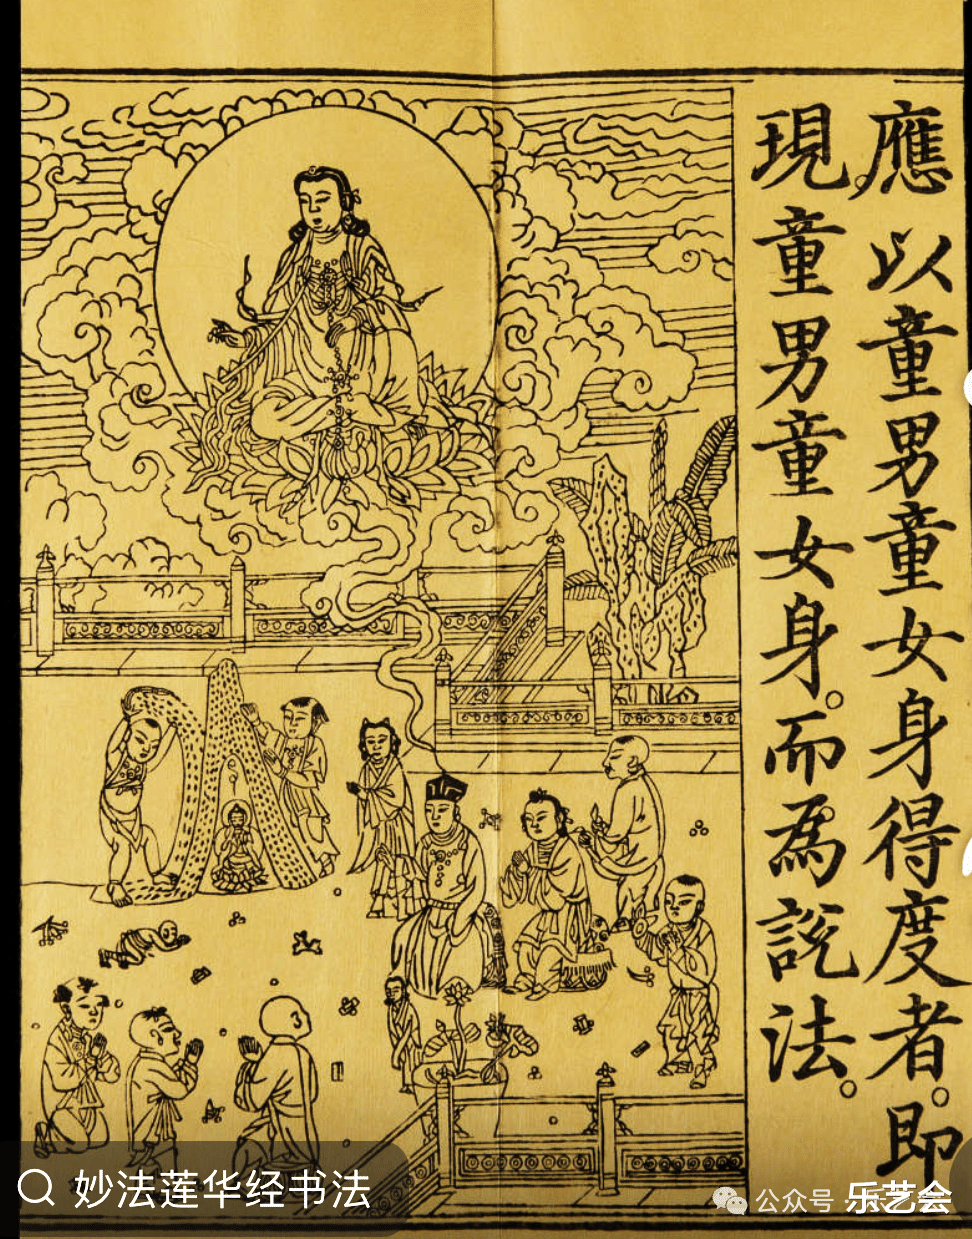 應以童男童女身得度者。即
現童男童女身。而為説法。
妙法莲华经书法
公众号
乐艺会